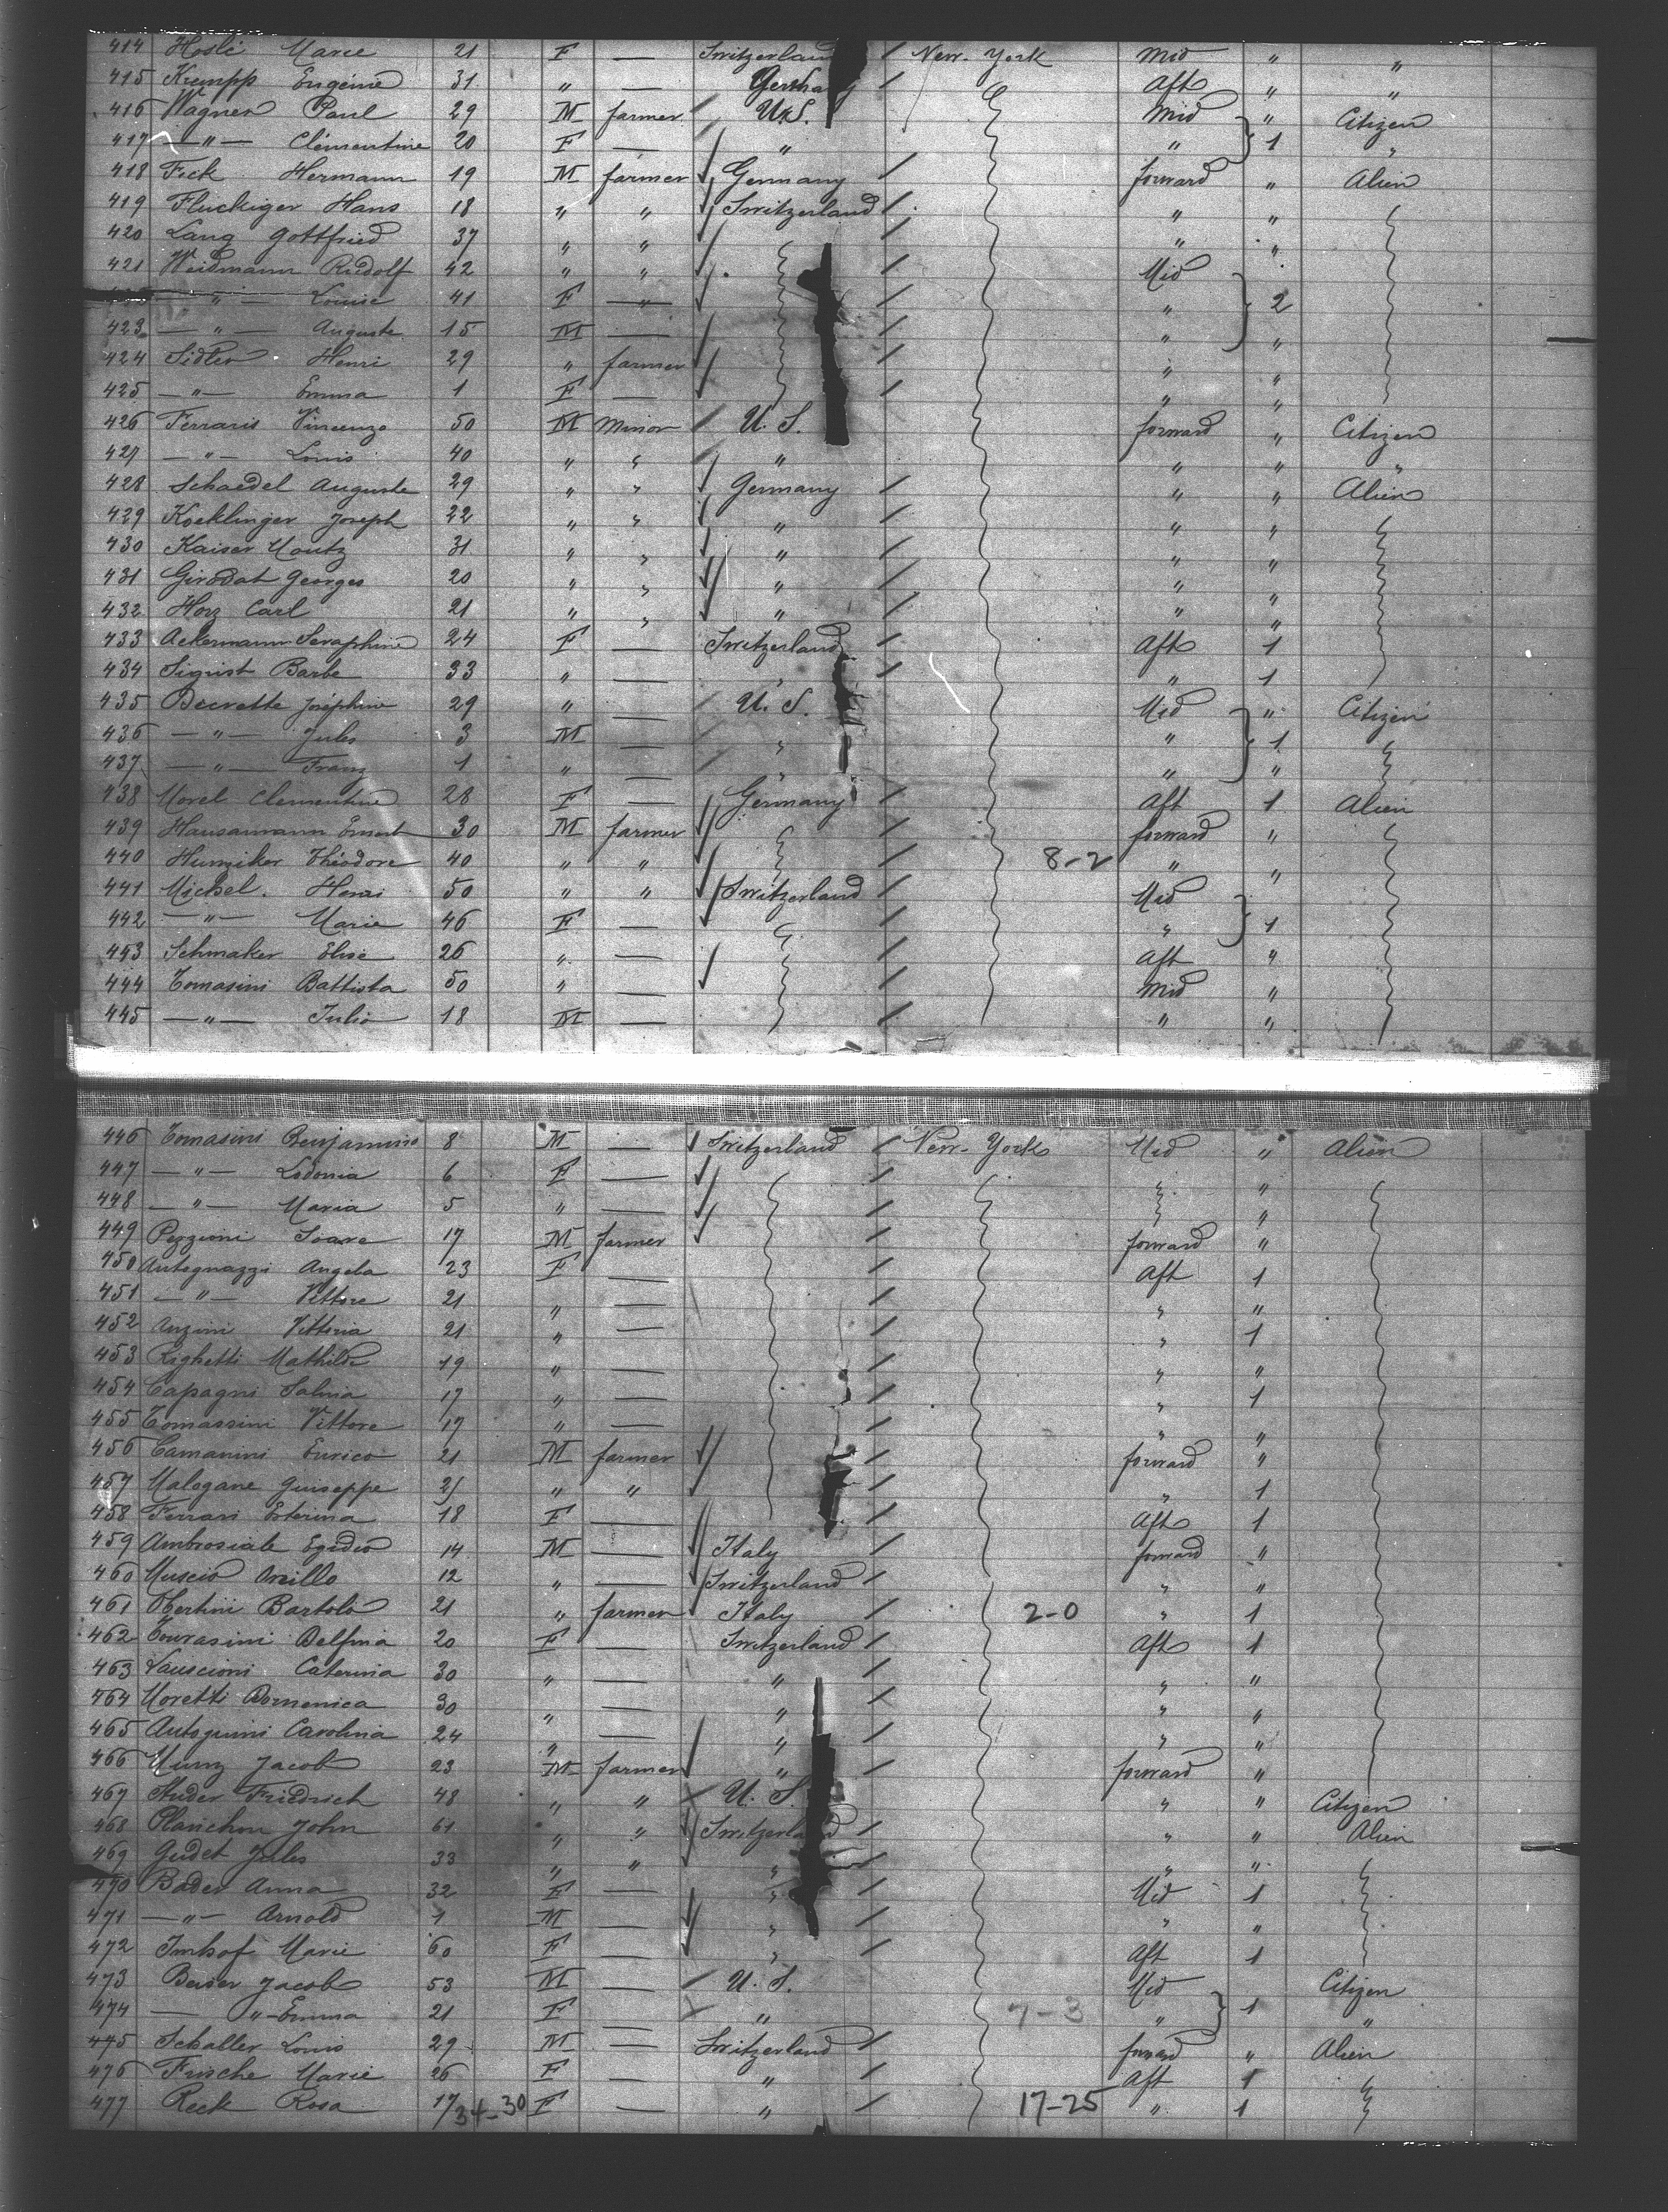 414 Hosli Marie 21 F — Switzerland / New-York Mid " "
415 Krempp Eugénie 31 " — Germany Aft " "
416 Wagner Paul 29 M farmer / U.S. Mid " Citizen
417 — " — Clémentine 20 F — " " 1 "
418 Fick Hermann 19 M farmer Germany / forward " Alien
419 Fluckiger Hans 18 " " Switzerland / " "
420 Lang Gottfried 37 " " / " "
421 Weidmann Rudolf 42 " " / Mid
— " — Louise 41 F — " — / " 2
423 — " — Auguste 15 M — / " "
424 Sidler Henri 29 " farmer / " "
425 — " — Emma 1 F — / " "
426 Ferraris Vincenzo 50 M Minor / U. S. forward " Citizen
427 — " — Louis 40 " " " " " "
428 Schaedel Auguste 29 " " Germany / " " Alien
429 Koeklinger Joseph 22 " " " / " "
430 Kaiser Moutz 31 " " " / " "
431 Girodat Georges 20 " " " / " "
432 Horz Carl 21 " " " / " "
433 Ackermann Seraphine 24 F — Switzerland / Aft 1
434 Sigrist Barbe 33 " — " / " 1
435 Decrette Joséphine 29 " — / U. S. Mid " Citizen
436 — " — Jules 3 M — / " " 1
437 — " — Franz 1 " — / " " "
438 Morel Clementine 28 F — Germany / Aft 1 Alien
439 Hausamann Ernest 30 M farmer / forward "
440 Hunziker Théodore 40 " " / 8-2 " "
441 Michel. Henri 50 " " Switzerland / Mid
442 — " — Marie 46 F — / " 1
443 Schmaker Elise 26 " — / Aft "
444 Tomasini Battista 50 " — / Mid "
445 — " — Julio 18 M — / " "
446 Tomasini Benjamino 8 M — Switzerland / New-York Mid " Alien
447 — " — Lodonia 6 F — / "
448 — " — Maria 5 " — / "
449 Pezzioni Soave 17 M farmer / forward "
450 Antognazzi Angela 23 F — / Aft 1
451 — " — Vittore 21 " — / " "
452 Anzini Vittoria 21 " — / " 1
453 Righetti Mathilde 19 " — / " "
454 Capagni Salvia 17 " — / " 1
455 Tomassini Vittore 17 " — / " "
456 Camanini Enrico 21 M farmer / forward "
457 Malogane Guiseppe 21 " " / " 1
458 Ferrari Esterina 18 F — / Aft 1
459 Ambrosiale Egidio 14 M — Italy / forward "
460 Muscio 12 " — Switzerland / " "
461 Bartolo 21 " farmer Italy / 2-0 " 1
462 Delfina 20 F — Switzerland / Aft 1
463 Lauscioni Caterina 30 " — " / " "
464 Moretti Domenica 30 " — " / " "
465 Carolina 24 " — " / " "
466 Munz Jacob 23 M farmer " / forward "
467 Studer Friedrich 48 " " / U. S. " " Citizen
468 Planchon John 61 " " Switzerland / " " Alien
469 Gudet Jules 33 " " " / " "
470 Bader Anna 32 F — " / Mid 1
471 — " — Arnold 1 M — " / " "
472 Imhof Marie 60 F — " / Aft 1
473 Beiser Jacob 53 M — / U. S. Mid Citizen
474 — " — Emma 21 F — / " 7-3 " 1 "
475 Schaller Louis 29 M — Switzerland / forward " Alien
476 Frische Marie 26 F — " / Aft 1
477 Reck Rosa 17 34-30 F — " / 17-25 " 1